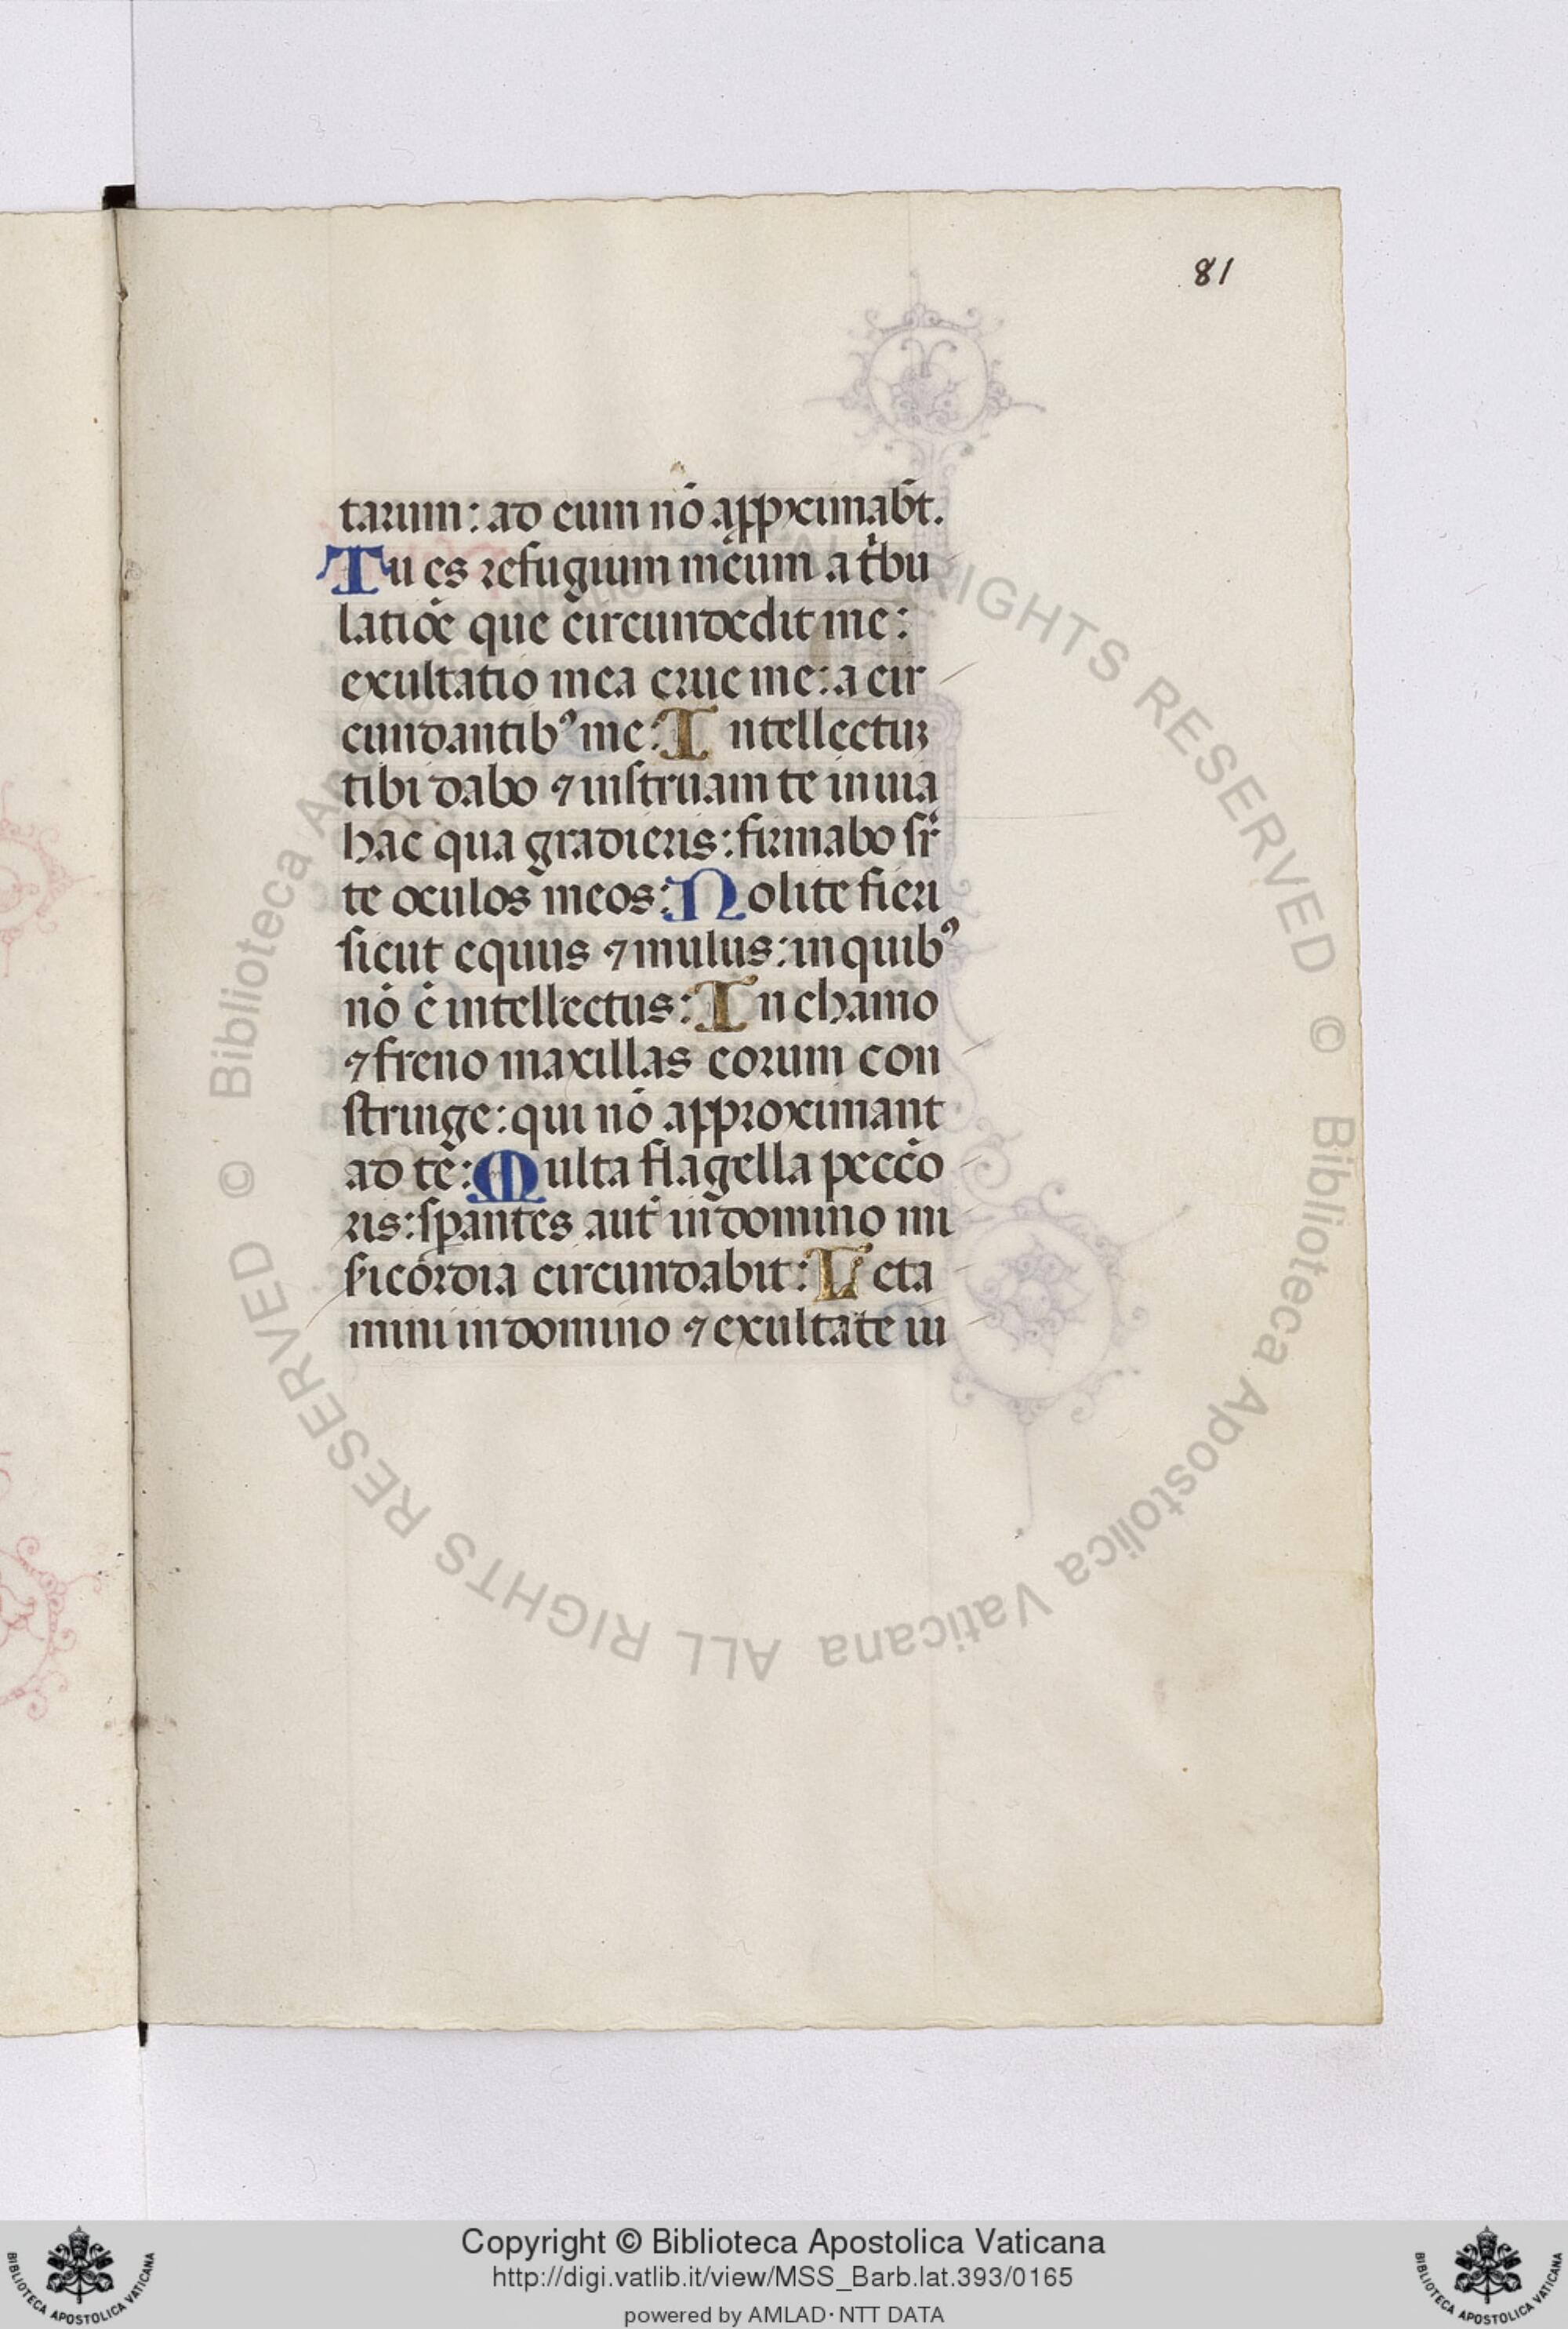 81
tarum: ad eum nō apꝓximab̄t.
Tu es refugium meum a tⁱbu
latiōe que circundedit me:
exultatio mea erue me: a cir
cundantibꝰ me: Intellectuꝫ
tibi dabo ⁊ instruam te in uia
hac qua gradieris: firmabo sr̄
te oculos meos: Nolite fieri
sicut equus ⁊ mulus: in quibꝰ
nō ē intellectus: In chamo
⁊ freno maxillas eorum con
stringe: qui nō approximant
ad te: Multa flagella peccō
ris: sꝑantes aut̄ in domino mi
sicordia circundabit: Leta
mini in domino ⁊ exultate in
© Biblioteca Apostolica Vaticana ALL RIGHTS RESERVED
© Biblioteca Apostolica Vaticana ALL RIGHTS RESERVED
Copyright © Biblioteca Apostolica Vaticana
http://digi.vatlib.it/view/MSS_Barb.lat.393/0165
powered by AMLAD·NTT DATA
BIBLIOTECA APOSTOLICA VATICANA
BIBLIOTECA APOSTOLICA VATICANA